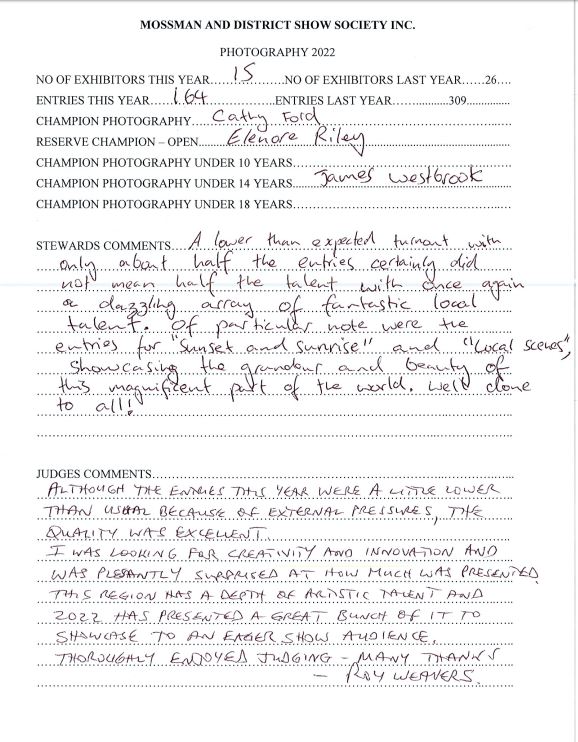 MOSSMAN AND DISTRICT SHOW SOCIETY INC.
PHOTOGRAPHY 2022
NO OF EXHIBITORS THIS YEAR....15......NO OF EXHIBITORS LAST YEAR......26....
ENTRIES THIS YEAR......164..............ENTRIES LAST YEAR...........309...............
CHAMPION PHOTOGRAPHY....Cathy Ford
RESERVE CHAMPION – OPEN.....Elenore Riley
CHAMPION PHOTOGRAPHY UNDER 10 YEARS..........
CHAMPION PHOTOGRAPHY UNDER 14 YEARS.....James Westbrook
CHAMPION PHOTOGRAPHY UNDER 18 YEARS..........
STEWARDS COMMENTS....A lower than expected turnout with
only about half the entries certainly did
not mean half the talent with once again
a dazzling array of fantastic local
talent. Of particular note were the
entries for "Sunset and Sunrise" and "Local Scenes",
showcasing the grandeur and beauty of
this magnificent part of the world. Well done
to all!
JUDGES COMMENTS..........
ALTHOUGH THE ENTRIES THIS YEAR WERE A LITTLE LOWER
THAN USUAL BECAUSE OF EXTERNAL PRESSURES, THE
QUALITY WAS EXCELLENT.
I WAS LOOKING FOR CREATIVITY AND INNOVATION AND
WAS PLESANTLY SURPRISED AT HOW MUCH WAS PRESENTED.
THIS REGION HAS A DEPTH OF ARTISTIC TALENT AND
2022 HAS PRESENTED A GREAT BUNCH OF IT TO
SHOWCASE TO AN EAGER SHOW AUDIENCE.
THOROUGHLY ENJOYED JUDGING – MANY THANKS
– ROY WEAVERS.